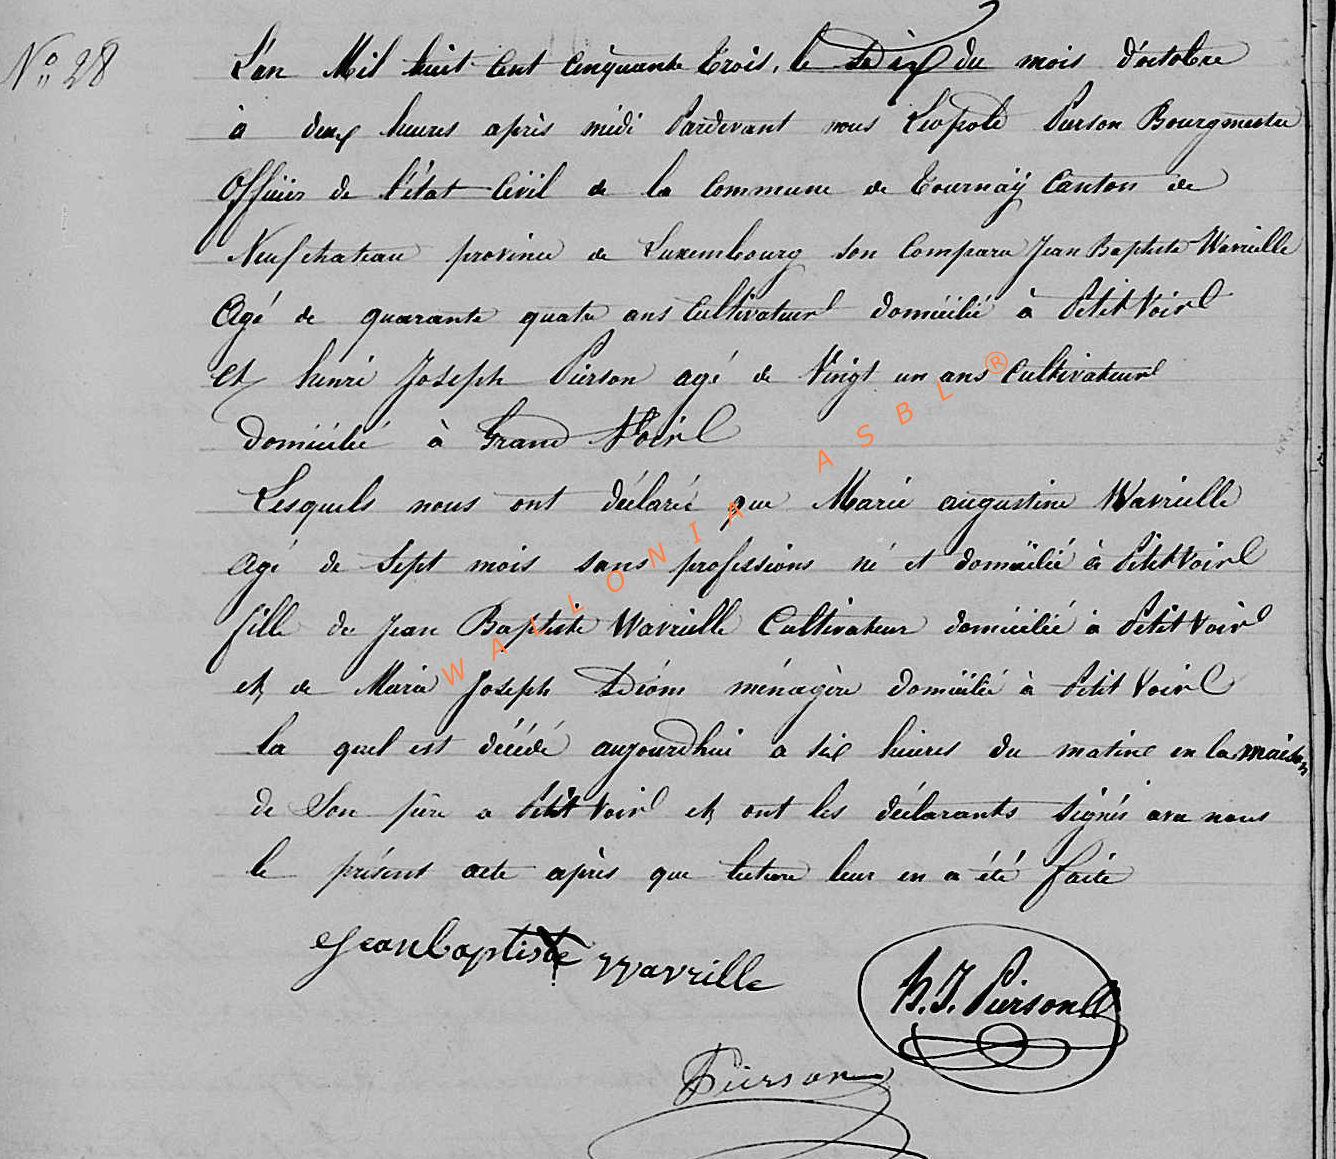 N° 28
L'an Mil huit Cent Cinquante Trois, le Dix du mois d'octobre
à deux heures après midi Pardevant nous Léopold Pierson Bourgmestre
Officier de l'état Civil de la Commune de Tournaÿ Canton de
Neufchateau province de Luxembourg son Comparu Jean Baptiste Wavreille
Agé de quarante quatre ans Cultivateur domicilié à Petit Voir
et henri Joseph Pierson agé de Vingt un ans Cultivateur
domicilié à Grand Voir
Lesquels nous ont déclaré que Marie augustine Wavreille
Agé de Sept mois sans professions né et domicilié à Petit Voir
fille de Jean Baptiste Wavreille Cultivateur domicilié à Petit Voir
et de Maria Joseph Déom ménagère domicilié à Petit Voir
la quel est décédé aujourdhui a six heures du matine en la maison
de Son père a Petit Voir et ont les déclarants Signés avec nous
le présent acte après que lecture leur en a été faite
Jean baptiste Wavrille
h. J. Pierson
Pierson
WALLONIA ASBL ®